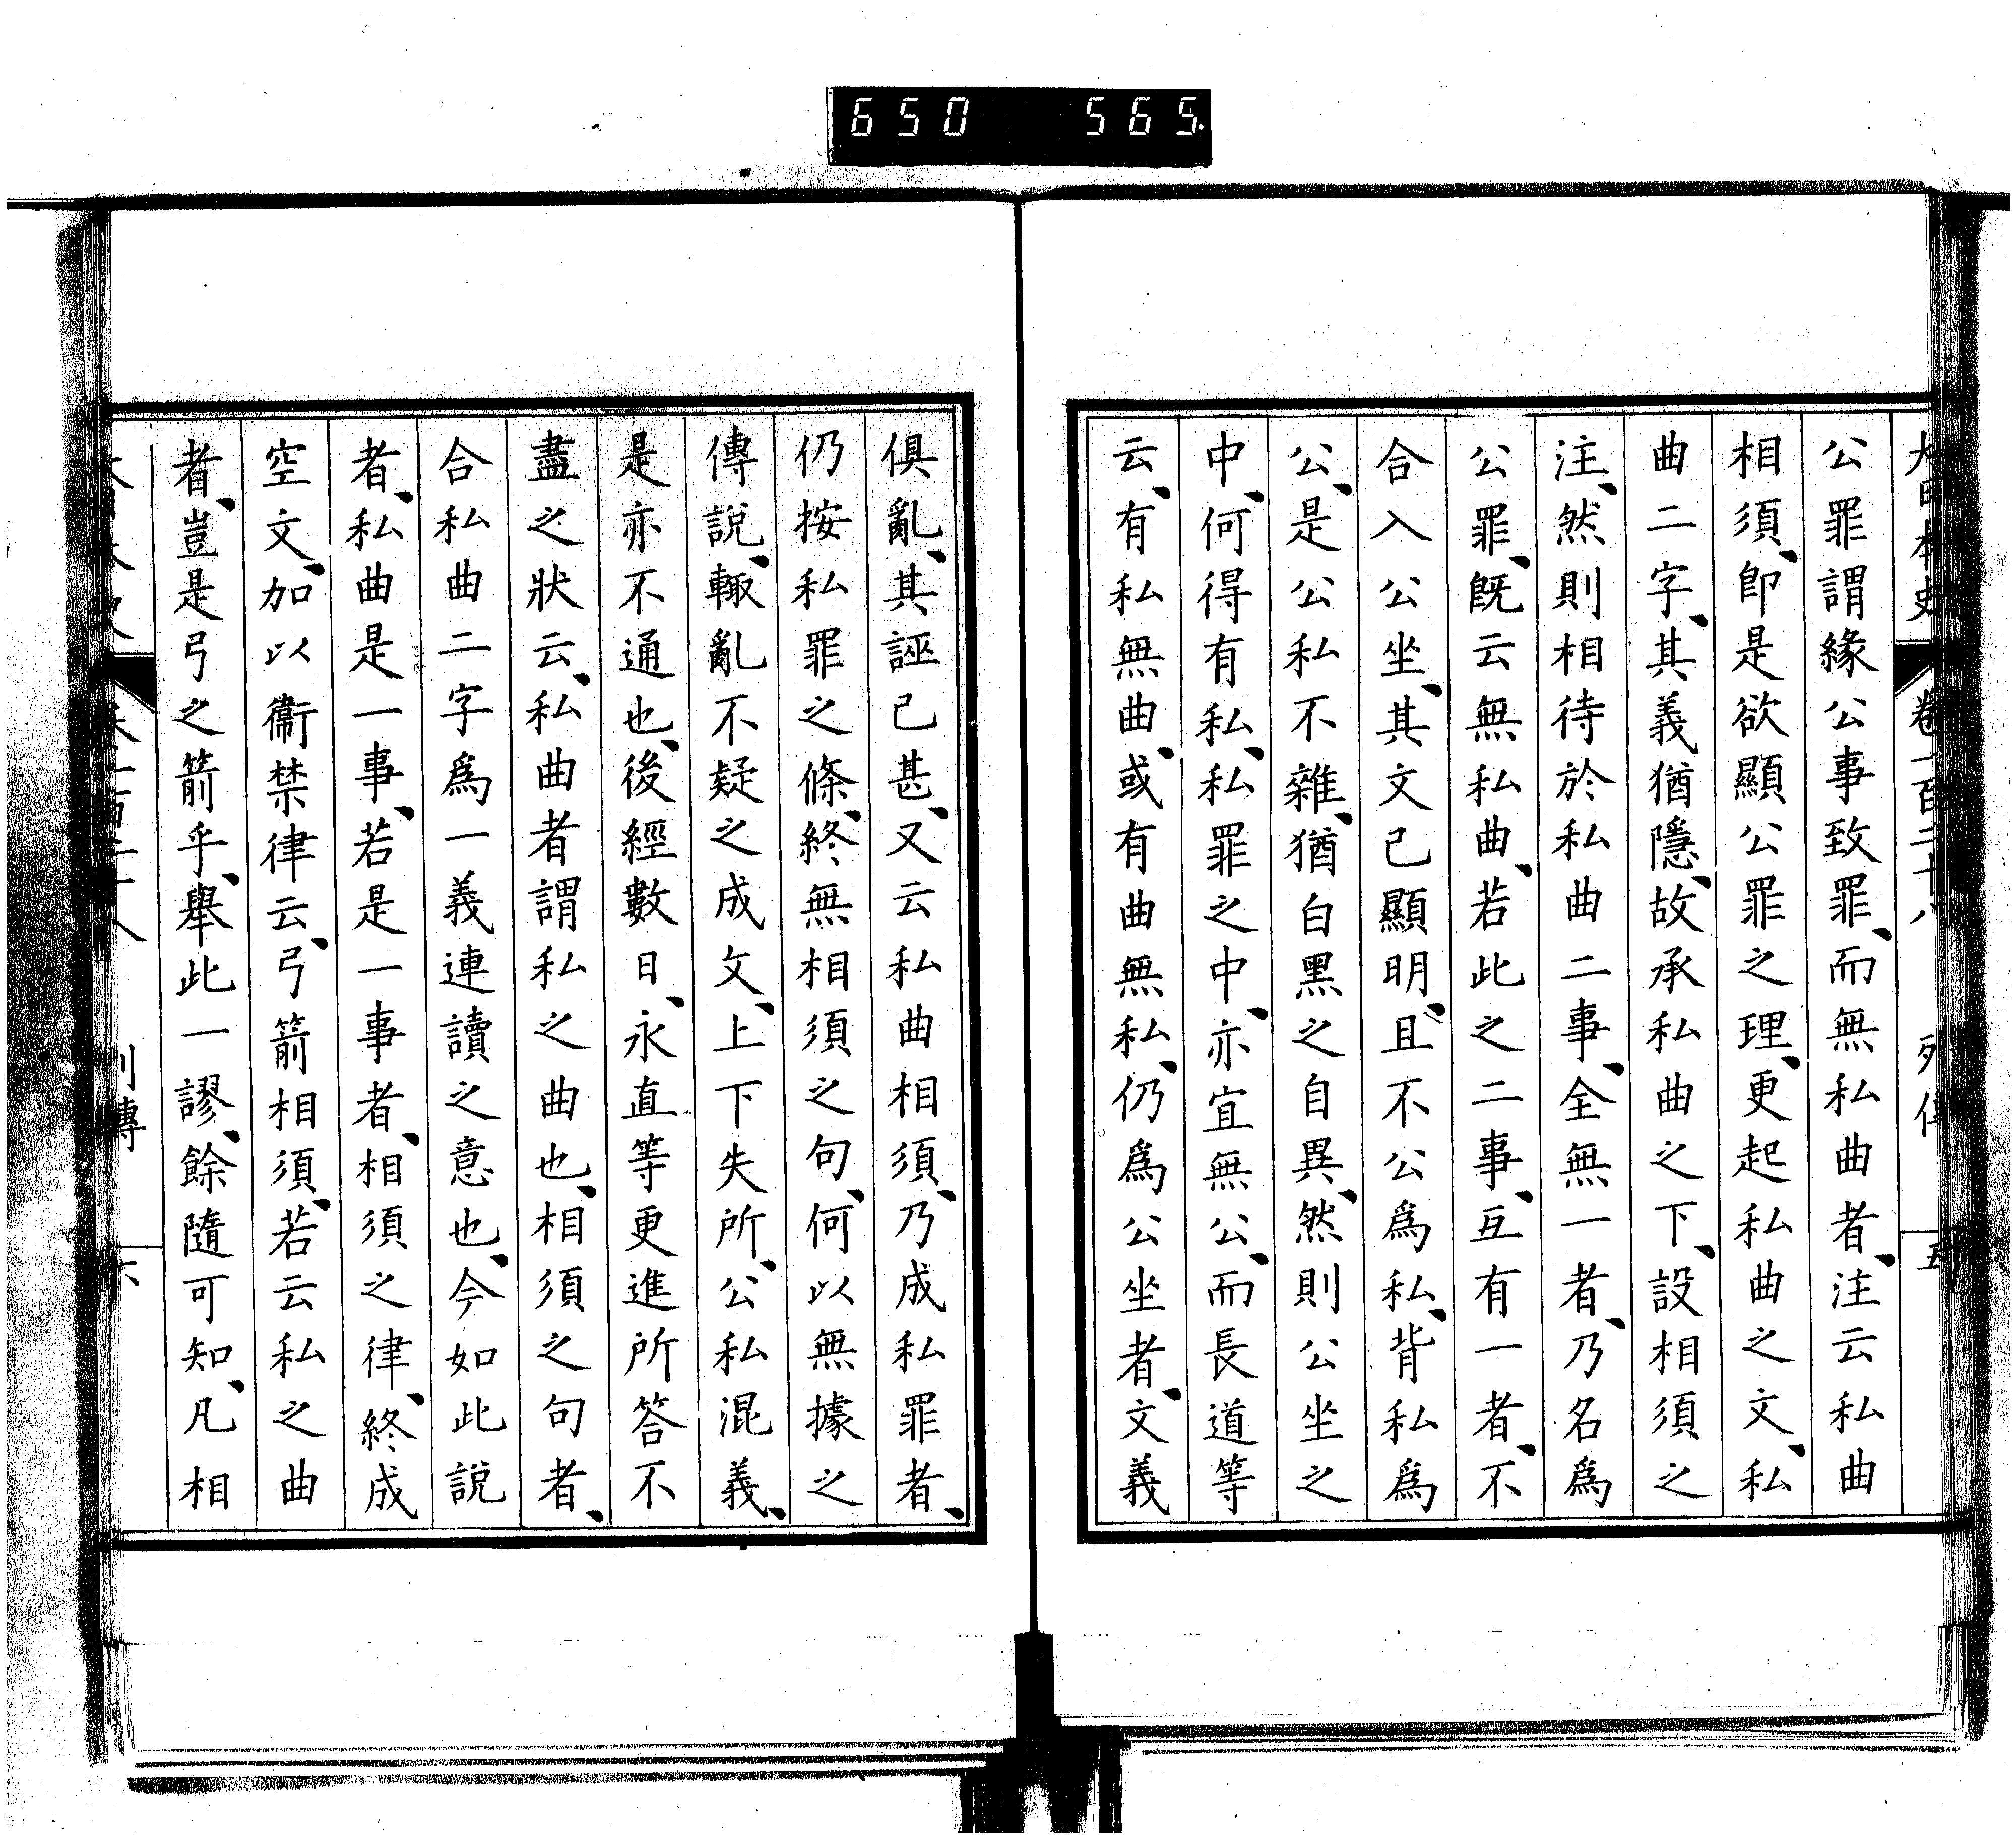 650 565
大日本史 卷一百二十八 列傳 五
公罪謂緣公事致罪、而無私曲者、注云私曲
相須、卽是欲顯公罪之理、更起私曲之文、私
曲二字、其義猶隱、故承私曲之下、設相須之
注、然則相待於私曲二事、全無一者、乃名爲
公罪、旣云無私曲、若此之二事、互有一者、不
合入公坐、其文已顯明、且不公爲私、背私爲
公、是公私不雜、猶白黑之自異、然則公坐之
中、何得有私、私罪之中、亦宜無公、而長道等
云、有私無曲、或有曲無私、仍爲公坐者、文義
俱亂、其誣已甚、又云私曲相須、乃成私罪者、
仍按私罪之條、終無相須之句、何以無據之
傳說、輙亂不疑之成文、上下失所、公私混義、
是亦不通也、後經數日、永直等更進所答不
盡之狀云、私曲者謂私之曲也、相須之句者、
合私曲二字爲一義連讀之意也、今如此說
者、私曲是一事、若是一事者、相須之律、終成
空文、加以衞禁律云、弓箭相須、若云私之曲
者、豈是弓之箭乎、擧此一謬、餘隨可知、凡相
列傳 六